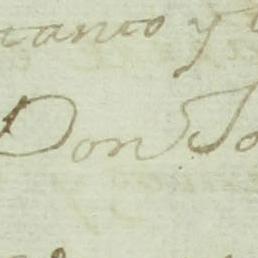 tanto y
Don Jo